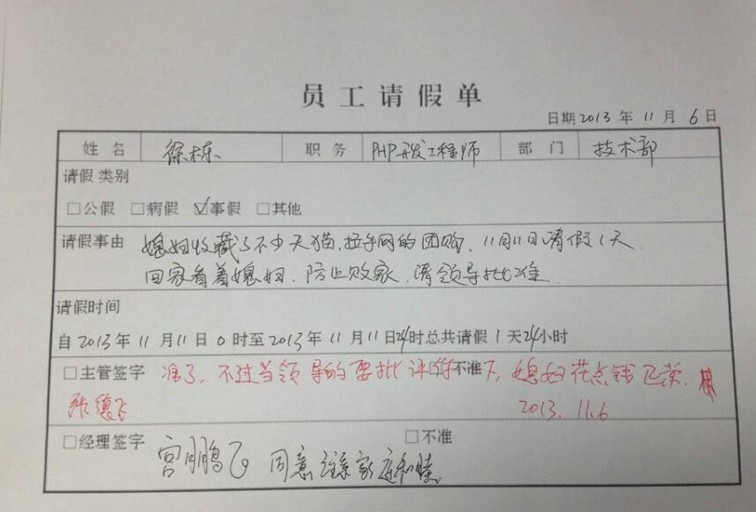 员工请假单
日期 2013 年 11 月 6 日
姓名 徐栋 职务 PHP开发工程师 部门 技术部
请假类别
□公假 □病假 ☑事假 □其他
请假事由 媳妇收藏了不少天猫、拉手网的团购、11月11日请假1天
回家看着媳妇、防止败家、请领导批准
请假时间
自 2013 年 11 月 11 日 0 时至 2013 年 11 月 11 日 24 时总共请假 1 天 24 小时
□主管签字 准了、不过当领导的要批评 □不准 下、媳妇花点钱 、
张 飞 2013.11.6
□经理签字 宫鹏飞 同意 家庭和睦 □不准